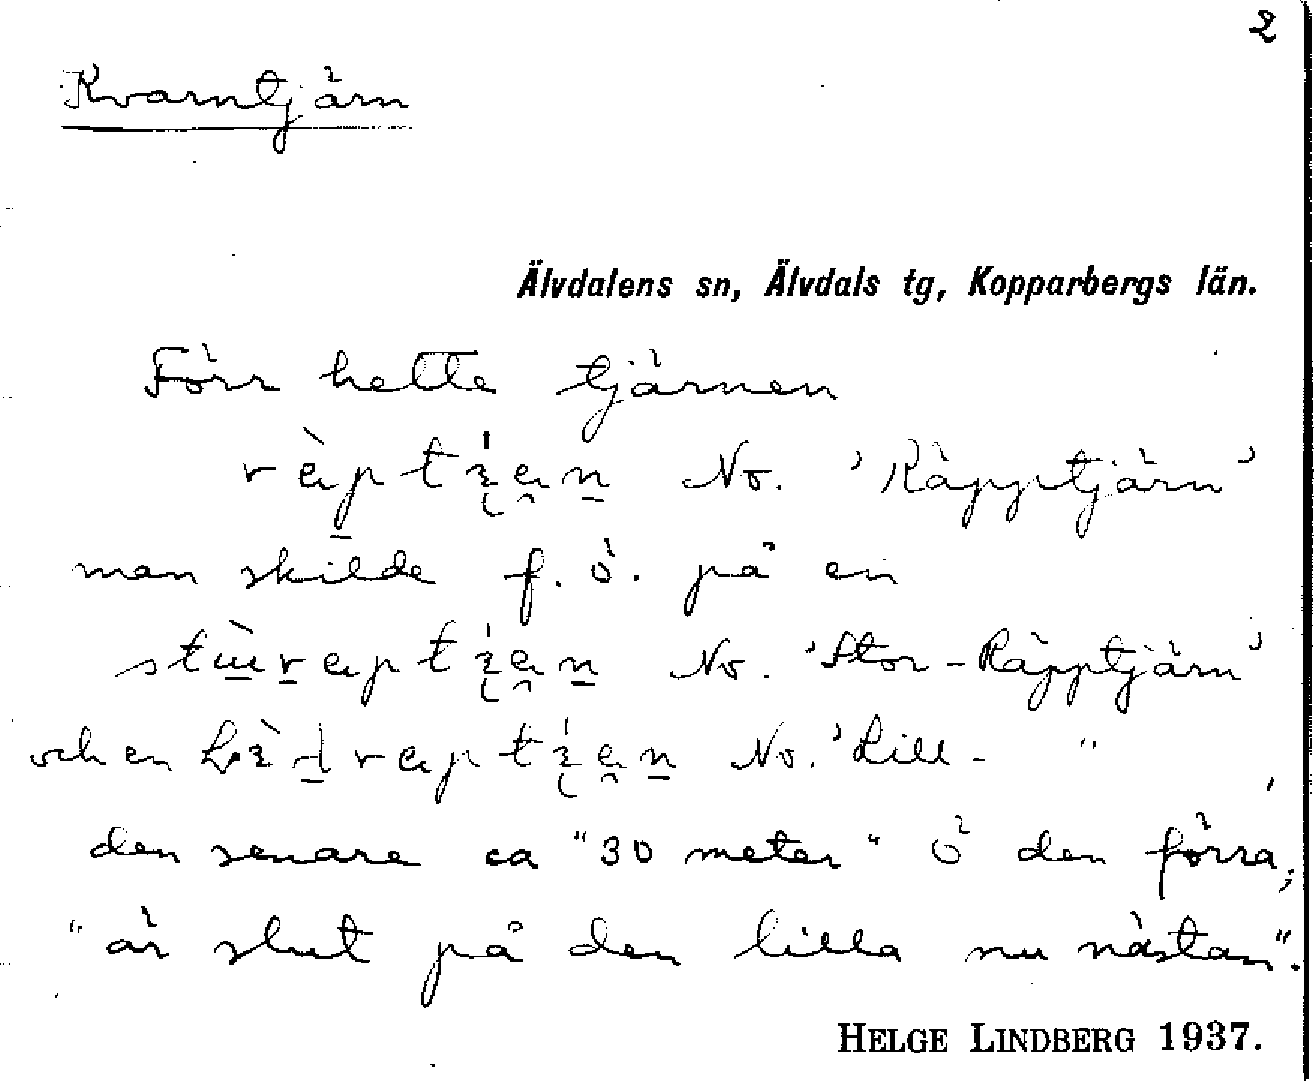 2
Kvarntjärn
Älvdalens sn, Älvdals tg, Kopparbergs län.
Förr hette tjärnen
No. 'Räpptjärn'
man skilde f. ö. på en
No. 'Stor-Räpptjärn'
och en No. 'Lill- "
den senare ca "30 meter" Ö den förra;
"är slut på den lilla nu nästan".
HELGE LINDBERG 1937.